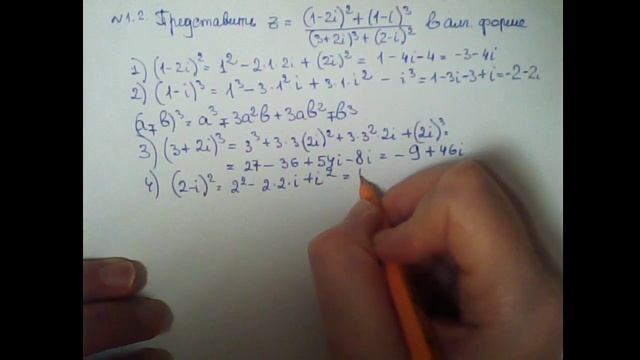 №1.2. Представить z = \frac{(1-2i)^2+(1-i)^3}{(3+2i)^3+(2-i)^2} в алг. форме
1) (1-2i)^2 = 1^2 - 2·1·2i + (2i)^2 = 1-4i-4 = -3-4i
2) (1-i)^3 = 1^3 - 3·1^2 i + 3·1·i^2 - i^3 = 1-3i-3+i = -2-2i
(a+b)^3 = a^3+3a^2b+3ab^2+b^3
3) (3+2i)^3 = 3^3 + 3·3(2i)^2 + 3·3^2·2i + (2i)^3 =
= 27-36+54i-8i = -9+46i
4) (2-i)^2 = 2^2 - 2·2·i + i^2 =